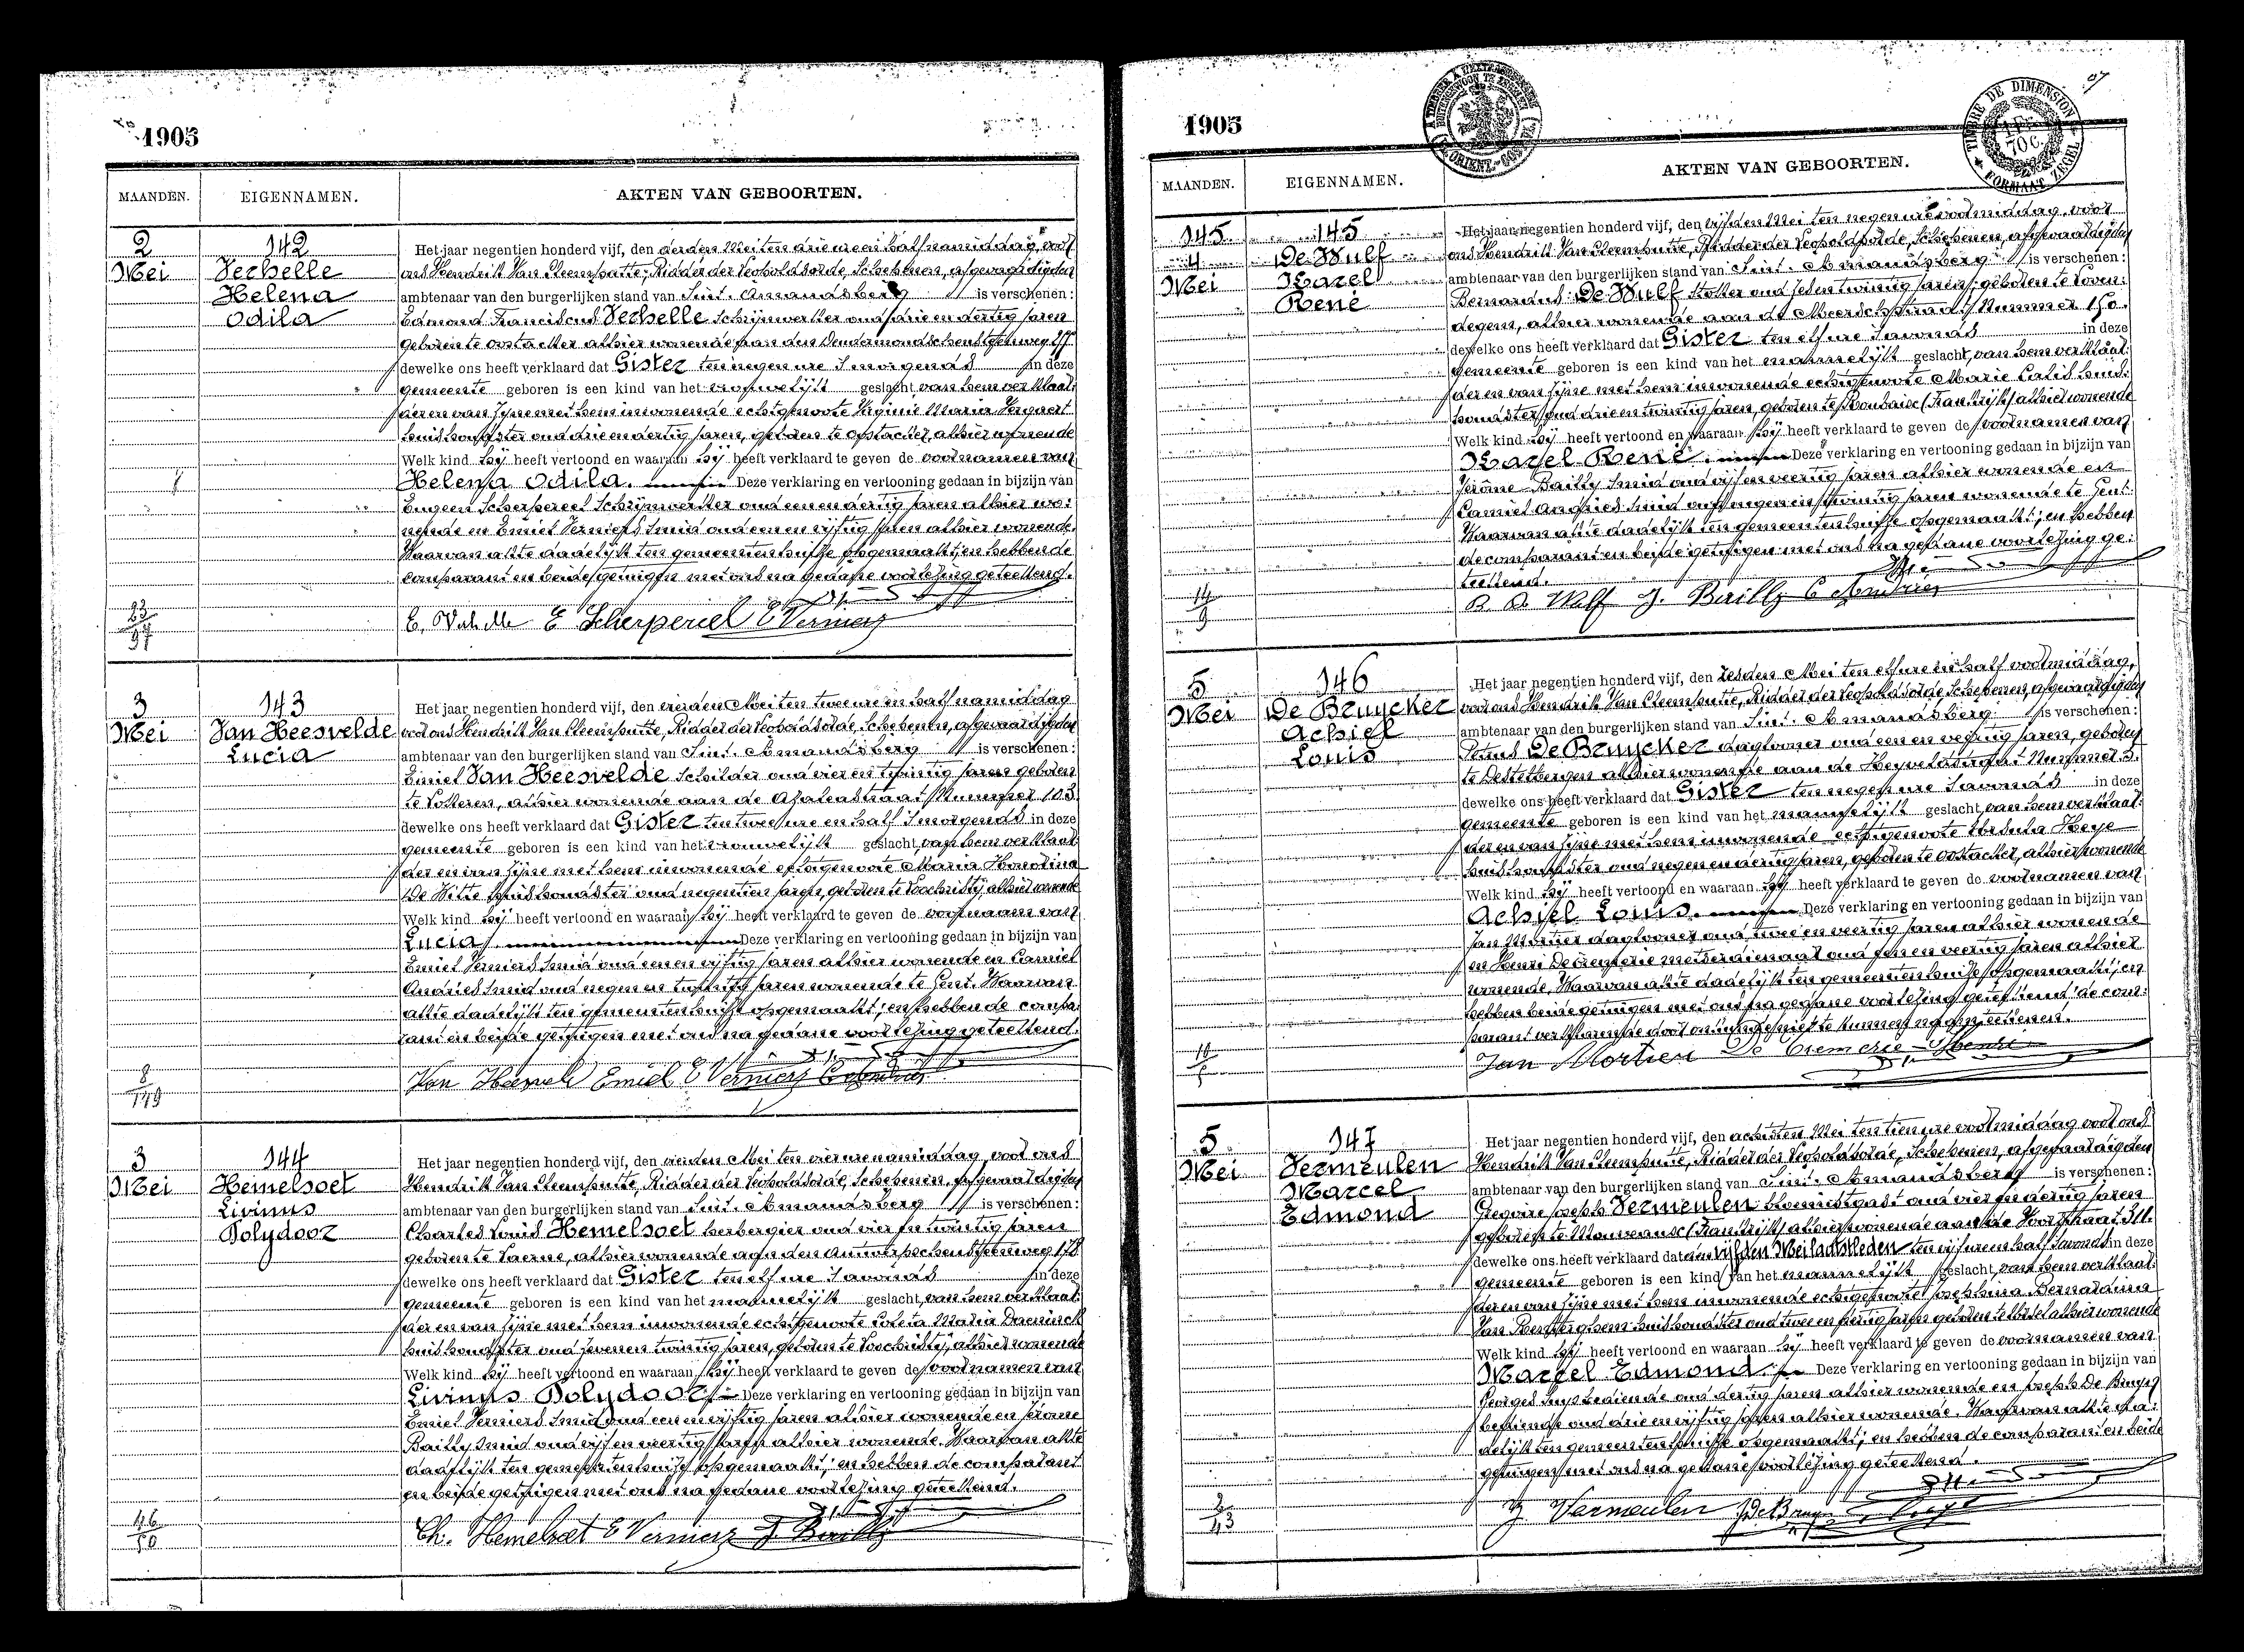 1905
MAANDEN. EIGENNAMEN. AKTEN VAN GEBOORTEN.
2 142
Mei Verhelle
Helena
Odila
Het jaar negentien honderd vijf, den derden Mei ten drie ure en half namiddag, voor
ons Hendrik Van Cleemputte, Ridder der Leopoldsorde, Schepenen, afgevaardigden
ambtenaar van den burgerlijken stand van Sint. Amandsberg is verschenen:
Edmond Franciscus Verhelle Schrijnwerker oud drie en dertig jaren
geboren te Oostacker alhier wonende aan den Dendermondschensteenweg
dewelke ons heeft verklaard dat Gister ten negen ure 's morgends in deze
gemeente geboren is een kind van het vrouwelijk geslacht, van hem verklaar:
der en van zijne met hem inwonende echtgenoote Virginie Maria
huishoudster oud drie en dertig jaren, geboren te Oostacker, alhier wonende
Welk kind hij heeft vertoond en waaraan hij heeft verklaard te geven de voornamen van
Helena Odila. Deze verklaring en vertooning gedaan in bijzijn van
Eugeen Scherpereel Schrijnwerker oud een en dertig jaren alhier wo:
nende en Emiel Verniers Smid oud een en vijftig jaren alhier wonende.
Waarvan akte dadelijk ten gemeentenhuize opgemaakt; en hebben de
comparant en beide getuigen met ons na gedane voorlezing geteekend.
E. Scherpereel E Verniers
3 143
Mei Van Heesvelde
Lucia
Het jaar negentien honderd vijf, den vierden Mei ten twee ure en half namiddag
voor ons Hendrik Van Cleemputte, Ridder der Leopoldsorde, Schepenen, afgevaardigden
ambtenaar van den burgerlijken stand van Sint. Amandsberg is verschenen:
Emiel Van Heesvelde Schilder oud vier en twintig jaren geboren
te Lokeren, alhier wonende aan de Azaleastraat Nummer 103
dewelke ons heeft verklaard dat Gister ten twee ure en half 's morgends in deze
gemeente geboren is een kind van het vrouwelijk geslacht, van hem verklaar:
der en van zijne met hem inwonende echtgenoote Maria
De Witte huishoudster oud negentien jaren, geboren te Loochristij, alhier wonende
Welk kind hij heeft vertoond en waaraan hij heeft verklaard te geven de voornaam van
Lucia. Deze verklaring en vertooning gedaan in bijzijn van
Emiel Verniers Smid oud een en vijftig jaren alhier wonende en Camiel
Andries Smid oud negen en twintig jaren wonende te Gent. Waarvan
akte dadelijk ten gemeentenhuize opgemaakt; en hebben de compa:
rant en beide getuigen met ons na gedane voorlezing geteekend.
Van Heesvelde Emiel E Verniers C Andries
3 144
Mei Hemelsoet
Livinus
Polydoor
Het jaar negentien honderd vijf, den vierden Mei ten vier ure namiddag, voor ons
Hendrik Van Cleemputte, Ridder der Leopoldsorde, Schepenen, afgevaardigden
ambtenaar van den burgerlijken stand van Sint. Amandsberg is verschenen:
Charles Louis Hemelsoet herbergier oud vier en twintig jaren
geboren te Laerne, alhier wonende aan den Antwerpschensteenweg 178
dewelke ons heeft verklaard dat Gister ten elf ure 's avonds in deze
gemeente geboren is een kind van het mannelijk geslacht, van hem verklaar:
der en van zijne met hem inwonende echtgenoote Coleta Maria Daeninck
huishoudster oud zeven en twintig jaren, geboren te Loochristij, alhier wonende
Welk kind hij heeft vertoond en waaraan hij heeft verklaard te geven de voornamen van
Livinus Polydoor. Deze verklaring en vertooning gedaan in bijzijn van
Emiel Verniers Smid oud een en vijftig jaren alhier wonende en Jérôme
Bailly Smid oud vijf en veertig jaren alhier wonende. Waarvan akte
dadelijk ten gemeentenhuize opgemaakt; en hebben de comparant
en beide getuigen met ons na gedane voorlezing geteekend.
Ch. Hemelsoet E Verniers J. Bailly
1905
MAANDEN. EIGENNAMEN. AKTEN VAN GEBOORTEN.
145 145
4 De Wulf
Mei Karel
René
Het jaar negentien honderd vijf, den vijfden Mei ten negen ure voormiddag, voor
ons Hendrik Van Cleemputte, Ridder der Leopoldsorde, Schepenen, afgevaardigden
ambtenaar van den burgerlijken stand van Sint. Amandsberg is verschenen:
Bernardus De Wulf Stoker oud zes en twintig jaren, geboren te Loven:
degem, alhier wonende aan de Meerschstraat Nummer 150.
dewelke ons heeft verklaard dat Gister ten elf ure 's avonds in deze
gemeente geboren is een kind van het mannelijk geslacht, van hem verklaar:
der en van zijne met hem inwonende echtgenoote Marie Calis huis:
houdster, oud drie en twintig jaren, geboren te Roubaix (Frankrijk) alhier wonende
Welk kind hij heeft vertoond en waaraan hij heeft verklaard te geven de voornamen van
Karel René. Deze verklaring en vertooning gedaan in bijzijn van
Jérôme Bailly Smid oud vijf en veertig jaren alhier wonende en
Camiel Andries Smid oud negen en twintig jaren wonende te Gent:
Waarvan akte dadelijk ten gemeentenhuize opgemaakt; en hebben
de comparant en beide getuigen met ons na gedane voorlezing ge:
teekend.
B. D. Wulf J. Bailly C Andries
5 146
Mei De Bruycker
Achiel
Louis
Het jaar negentien honderd vijf, den zesden Mei ten elf ure en half voormiddag,
voor ons Hendrik Van Cleemputte, Ridder der Leopoldsorde, Schepenen, afgevaardigden
ambtenaar van den burgerlijken stand van Sint. Amandsberg is verschenen:
Petrus De Bruycker daglooner oud een en veertig jaren, geboren
te Destelbergen alhier wonende aan de Heyveldstraat Nummer 3.
dewelke ons heeft verklaard dat Gister ten negen ure 's avonds in deze
gemeente geboren is een kind van het mannelijk geslacht, van hem verklaar:
der en van zijne met hem inwonende echtgenoote Ursula Heye
huishoudster oud negen en dertig jaren, geboren te Oostacker, alhier wonende
Welk kind hij heeft vertoond en waaraan hij heeft verklaard te geven de voornamen van
Achiel Louis. Deze verklaring en vertooning gedaan in bijzijn van
Jan Mortier daglooner oud twee en veertig jaren alhier wonende
en Henri De Cremerie metserdiener oud en veertig jaren alhier
wonende. Waarvan akte dadelijk ten gemeentenhuize opgemaakt; en
hebben beide getuigen met ons na gedane voorlezing geteekend de com:
parant verklarende door ons niet te kunnen
Jan Mortier De Cremerie Henri
5 147
Mei Vermeulen
Marcel
Edmond
Het jaar negentien honderd vijf, den achtsten Mei ten tien ure voormiddag voor ons
Hendrik Van Cleemputte, Ridder der Leopoldsorde, Schepenen, afgevaardigden
ambtenaar van den burgerlijken stand van Sint. Amandsberg is verschenen:
Gregoire Joseph Vermeulen bloemistgast oud vier en dertig jaren
geboren te Mouveaux (Frankrijk) alhier wonende aan de
dewelke ons heeft verklaard dat den vijfden Mei laatstleden ten vijf ure en half 's avonds in deze
gemeente geboren is een kind van het mannelijk geslacht, van hem verklaar:
der en van zijne met hem inwonende echtgenoote Josephina Bernardina
Van huishoudster oud twee en jaren geboren te alhier wonende
Welk kind hij heeft vertoond en waaraan hij heeft verklaard te geven de voornamen van
Marcel Edmond. Deze verklaring en vertooning gedaan in bijzijn van
Georges bediende oud dertig jaren alhier wonende en Joseph De Bruyn
bediende oud drie en vijftig jaren alhier wonende. Waarvan akte da:
delijk ten gemeentenhuize opgemaakt; en hebben de comparant en beide
getuigen met ons na gedane voorlezing geteekend.
Vermeulen
TIMBRE DE DIMENSION
FORMAAT ZEGEL